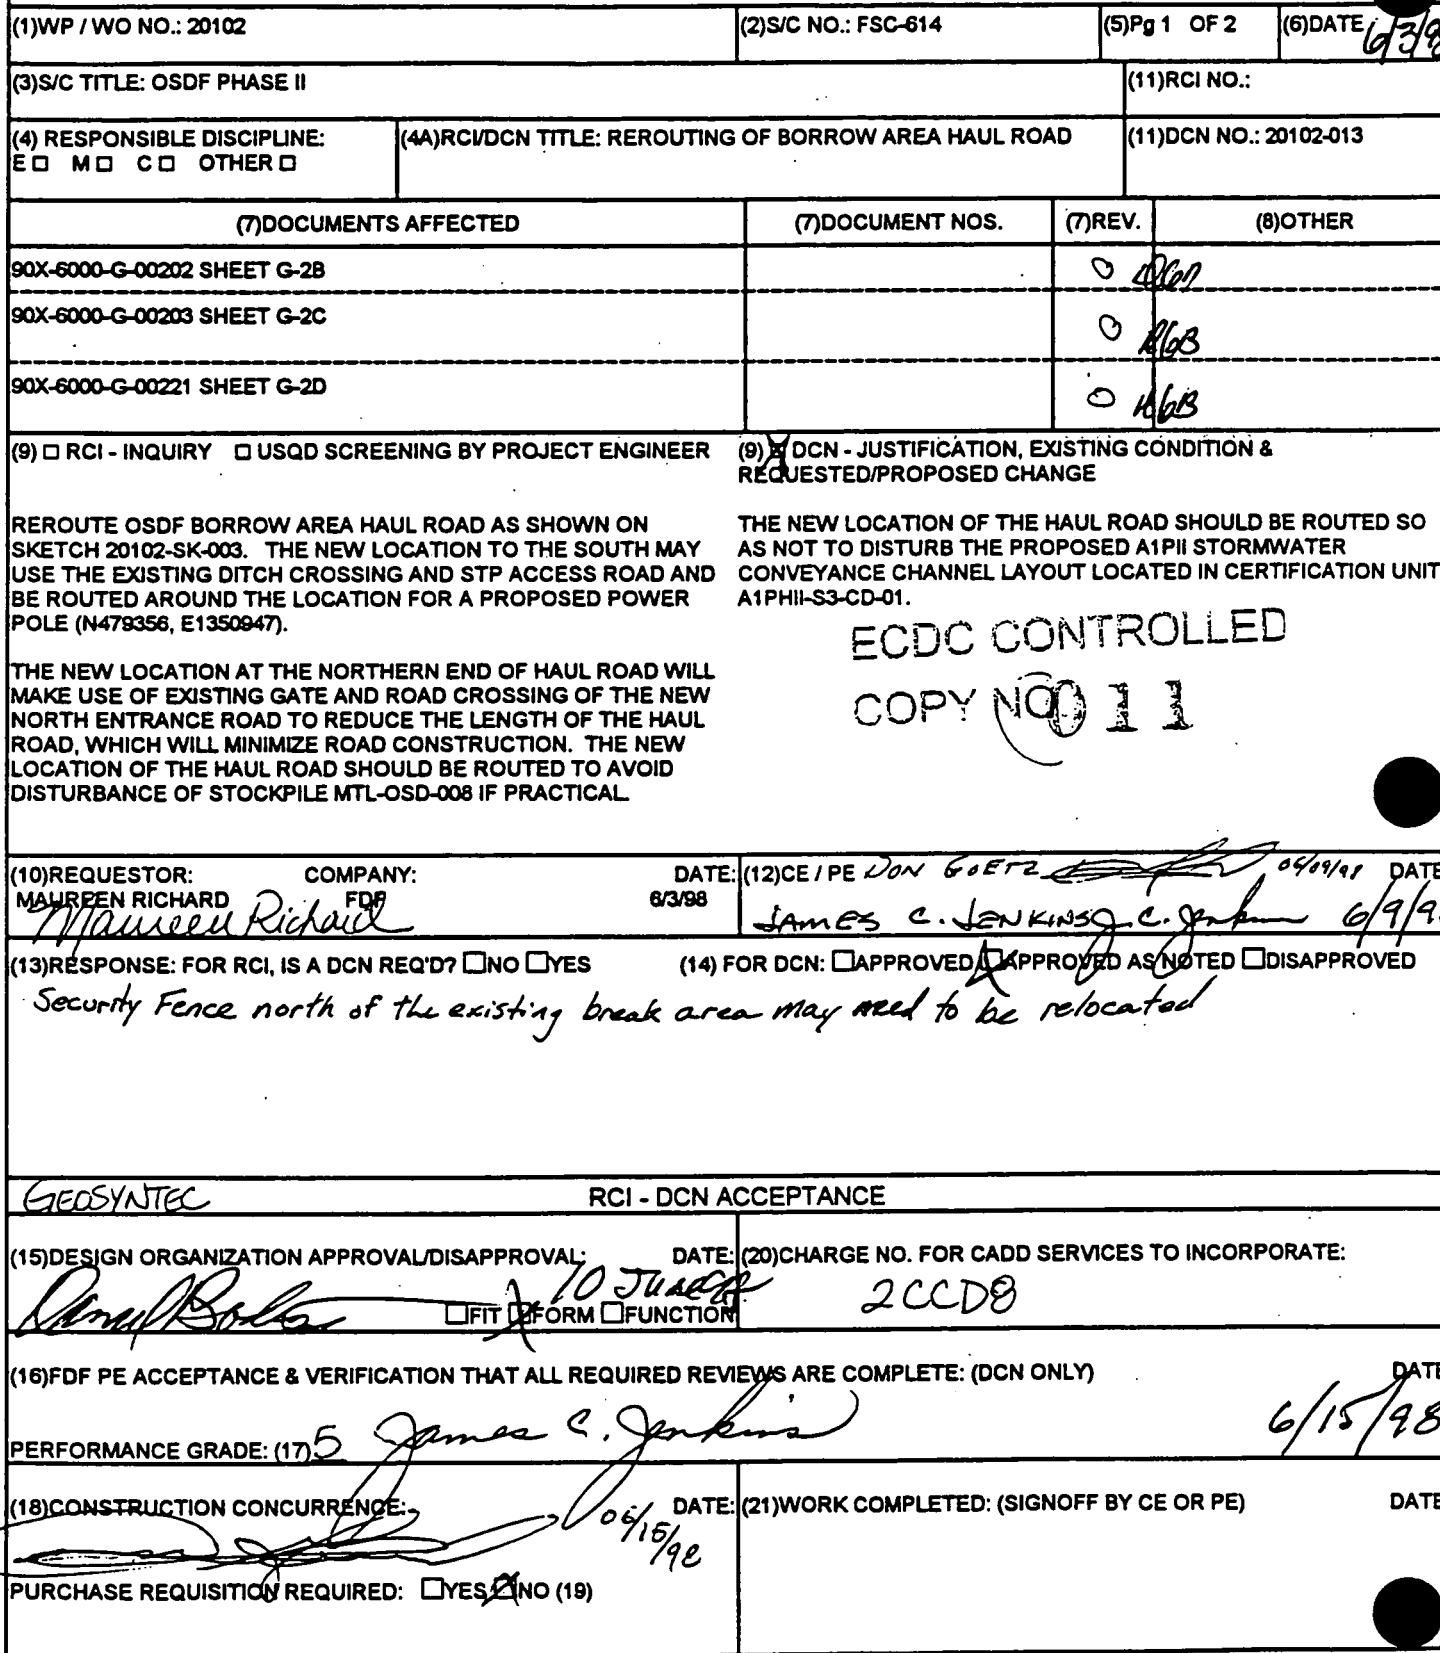 (1)WP / WO NO.: 20102 (2)S/C NO.: FSC-614 (5)Pg 1 OF 2 (6)DATE 6/3/9
(3)S/C TITLE: OSDF PHASE II (11)RCI NO.:
(4) RESPONSIBLE DISCIPLINE: (4A)RCI/DCN TITLE: REROUTING OF BORROW AREA HAUL ROAD (11)DCN NO.: 20102-013
E☐ M☐ C☐ OTHER☐
(7)DOCUMENTS AFFECTED (7)DOCUMENT NOS. (7)REV. (8)OTHER
90X-6000-G-00202 SHEET G-2B 0
90X-6000-G-00203 SHEET G-2C 0
90X-6000-G-00221 SHEET G-2D 0
(9) ☐ RCI - INQUIRY ☐ USQD SCREENING BY PROJECT ENGINEER
REROUTE OSDF BORROW AREA HAUL ROAD AS SHOWN ON
SKETCH 20102-SK-003. THE NEW LOCATION TO THE SOUTH MAY
USE THE EXISTING DITCH CROSSING AND STP ACCESS ROAD AND
BE ROUTED AROUND THE LOCATION FOR A PROPOSED POWER
POLE (N479356, E1350947).
THE NEW LOCATION AT THE NORTHERN END OF HAUL ROAD WILL
MAKE USE OF EXISTING GATE AND ROAD CROSSING OF THE NEW
NORTH ENTRANCE ROAD TO REDUCE THE LENGTH OF THE HAUL
ROAD, WHICH WILL MINIMIZE ROAD CONSTRUCTION. THE NEW
LOCATION OF THE HAUL ROAD SHOULD BE ROUTED TO AVOID
DISTURBANCE OF STOCKPILE MTL-OSD-008 IF PRACTICAL
(9) ☒ DCN - JUSTIFICATION, EXISTING CONDITION &
REQUESTED/PROPOSED CHANGE
THE NEW LOCATION OF THE HAUL ROAD SHOULD BE ROUTED SO
AS NOT TO DISTURB THE PROPOSED A1PII STORMWATER
CONVEYANCE CHANNEL LAYOUT LOCATED IN CERTIFICATION UNIT
A1PHII-S3-CD-01.
ECDC CONTROLLED
COPY NO 011
(10)REQUESTOR: COMPANY: DATE:
MAUREEN RICHARD FDF 6/3/98
Maureen Richard
(12)CE / PE DON GOETZ 06/09/98 DATE
JAMES C. JENKINS J. C. Jenkins 6/9/9
(13)RESPONSE: FOR RCI, IS A DCN REQ'D? ☐NO ☐YES (14) FOR DCN: ☐APPROVED ☒APPROVED AS NOTED ☐DISAPPROVED
Security Fence north of the existing break area may need to be relocated
GEOSYNTEC RCI - DCN ACCEPTANCE
(15)DESIGN ORGANIZATION APPROVAL/DISAPPROVAL: DATE:
10 June 98
☐FIT ☒FORM ☐FUNCTION
(20)CHARGE NO. FOR CADD SERVICES TO INCORPORATE:
2CCD8
(16)FDF PE ACCEPTANCE & VERIFICATION THAT ALL REQUIRED REVIEWS ARE COMPLETE: (DCN ONLY) DATE
PERFORMANCE GRADE: (17) 5 James C. Jenkins 6/15/98
(18)CONSTRUCTION CONCURRENCE: DATE:
06/15/98
PURCHASE REQUISITION REQUIRED: ☐YES ☒NO (19)
(21)WORK COMPLETED: (SIGNOFF BY CE OR PE) DATE